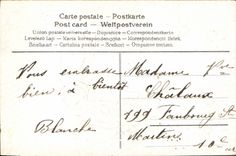 Carte postale - Postkarte
Post card - Weltpostverein
Union postale universelle - Dopisnice - Correspondenzkarte
Levelező Lap - Karta korespondencyjna - Korespondenční lístek
Brefkaart - Cartolina postale - Brefkort - Dopisnice
Vous embrasse
bien, à bientôt
Blanche
Madame
Châtaux
199 Faubourg St
Martin
10e